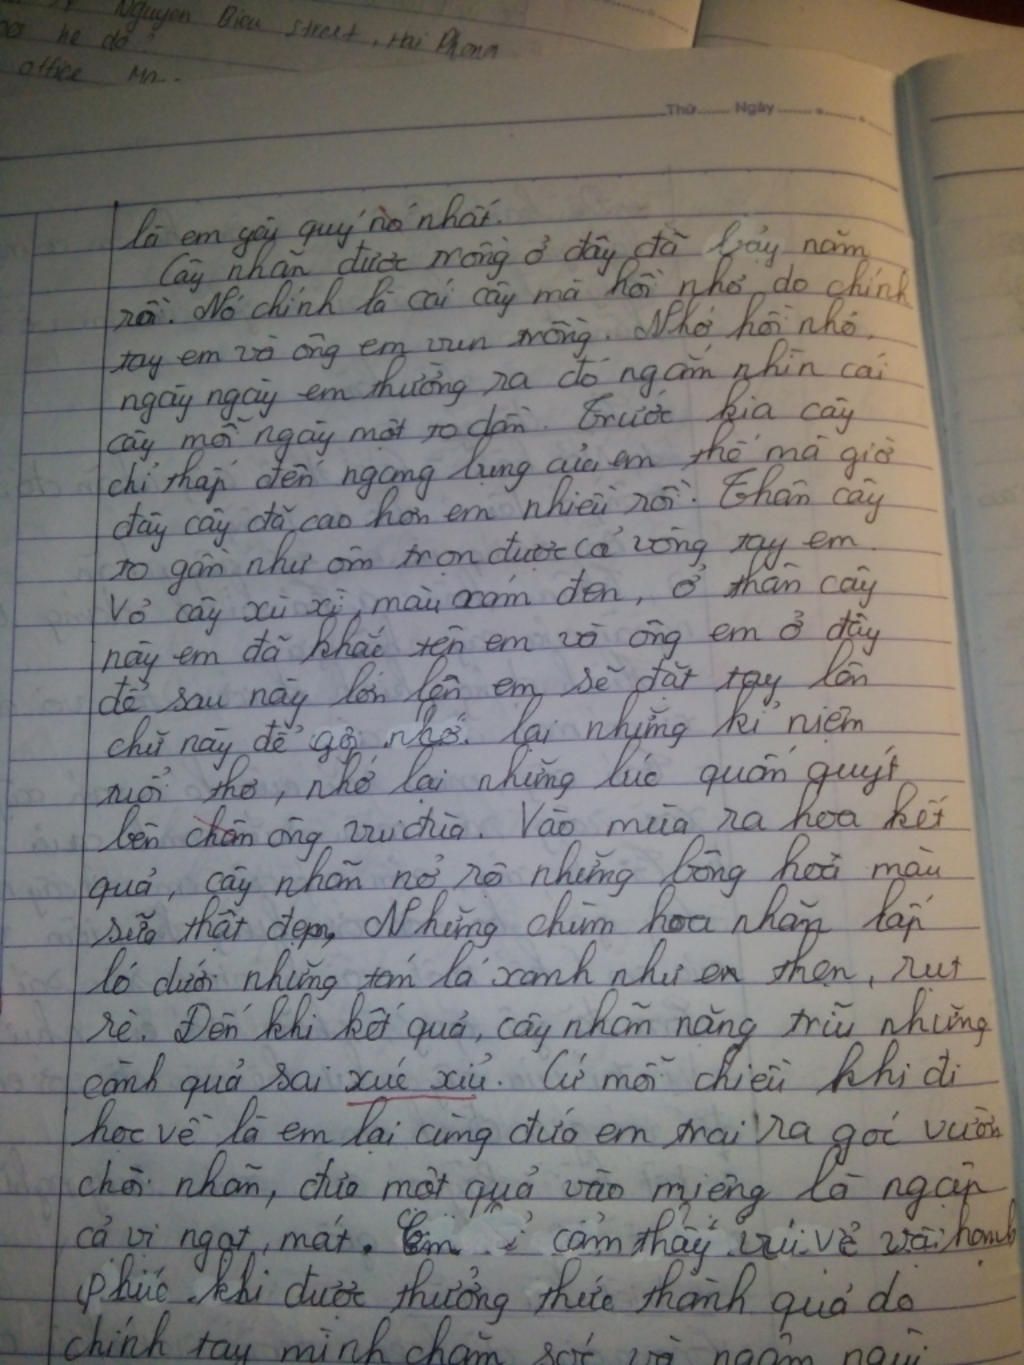 Nguyen Bieu street, Hai Phong
he do
office Mr..
Thứ ...... Ngày ......
là em yêu quý nó nhất.
Cây nhãn được trồng ở đây đã bảy năm
rồi. Nó chính là cái cây mà hồi nhỏ do chính
tay em và ông em vun trồng. Nhớ hồi nhỏ,
ngày ngày em thường ra đó ngắm nhìn cái
cây mỗi ngày một to dần. Trước kia cây
chỉ thấp đến ngang lưng của em thế mà giờ
đây cây đã cao hơn em nhiều rồi. Thân cây
to gần như ôm trọn được cả vòng tay em.
Vỏ cây xù xì, màu xám đen, ở thân cây
này em đã khắc tên em và ông em ở đây
để sau này lớn lên em sẽ đặt tay lên
chữ này để gợi nhớ lại những kỉ niệm
tuổi thơ, nhớ lại những lúc quấn quýt
bên chân ông vui đùa. Vào mùa ra hoa kết
quả, cây nhãn nở rộ những bông hoa màu
sữa thật đẹp. Những chùm hoa nhãn lấp
ló dưới những tán lá xanh như e thẹn, rụt
rè. Đến khi kết quả, cây nhãn nặng trĩu những
cành quả sai xúc xỉu. Cứ mỗi chiều khi đi
học về là em lại cùng đứa em trai ra góc vườn
chơi nhãn, đưa một quả vào miệng là ngập
cả vị ngọt, mát. Em cảm thấy vui vẻ và hạnh
phúc khi được thưởng thức thành quả do
chính tay mình chăm sóc và ngắm